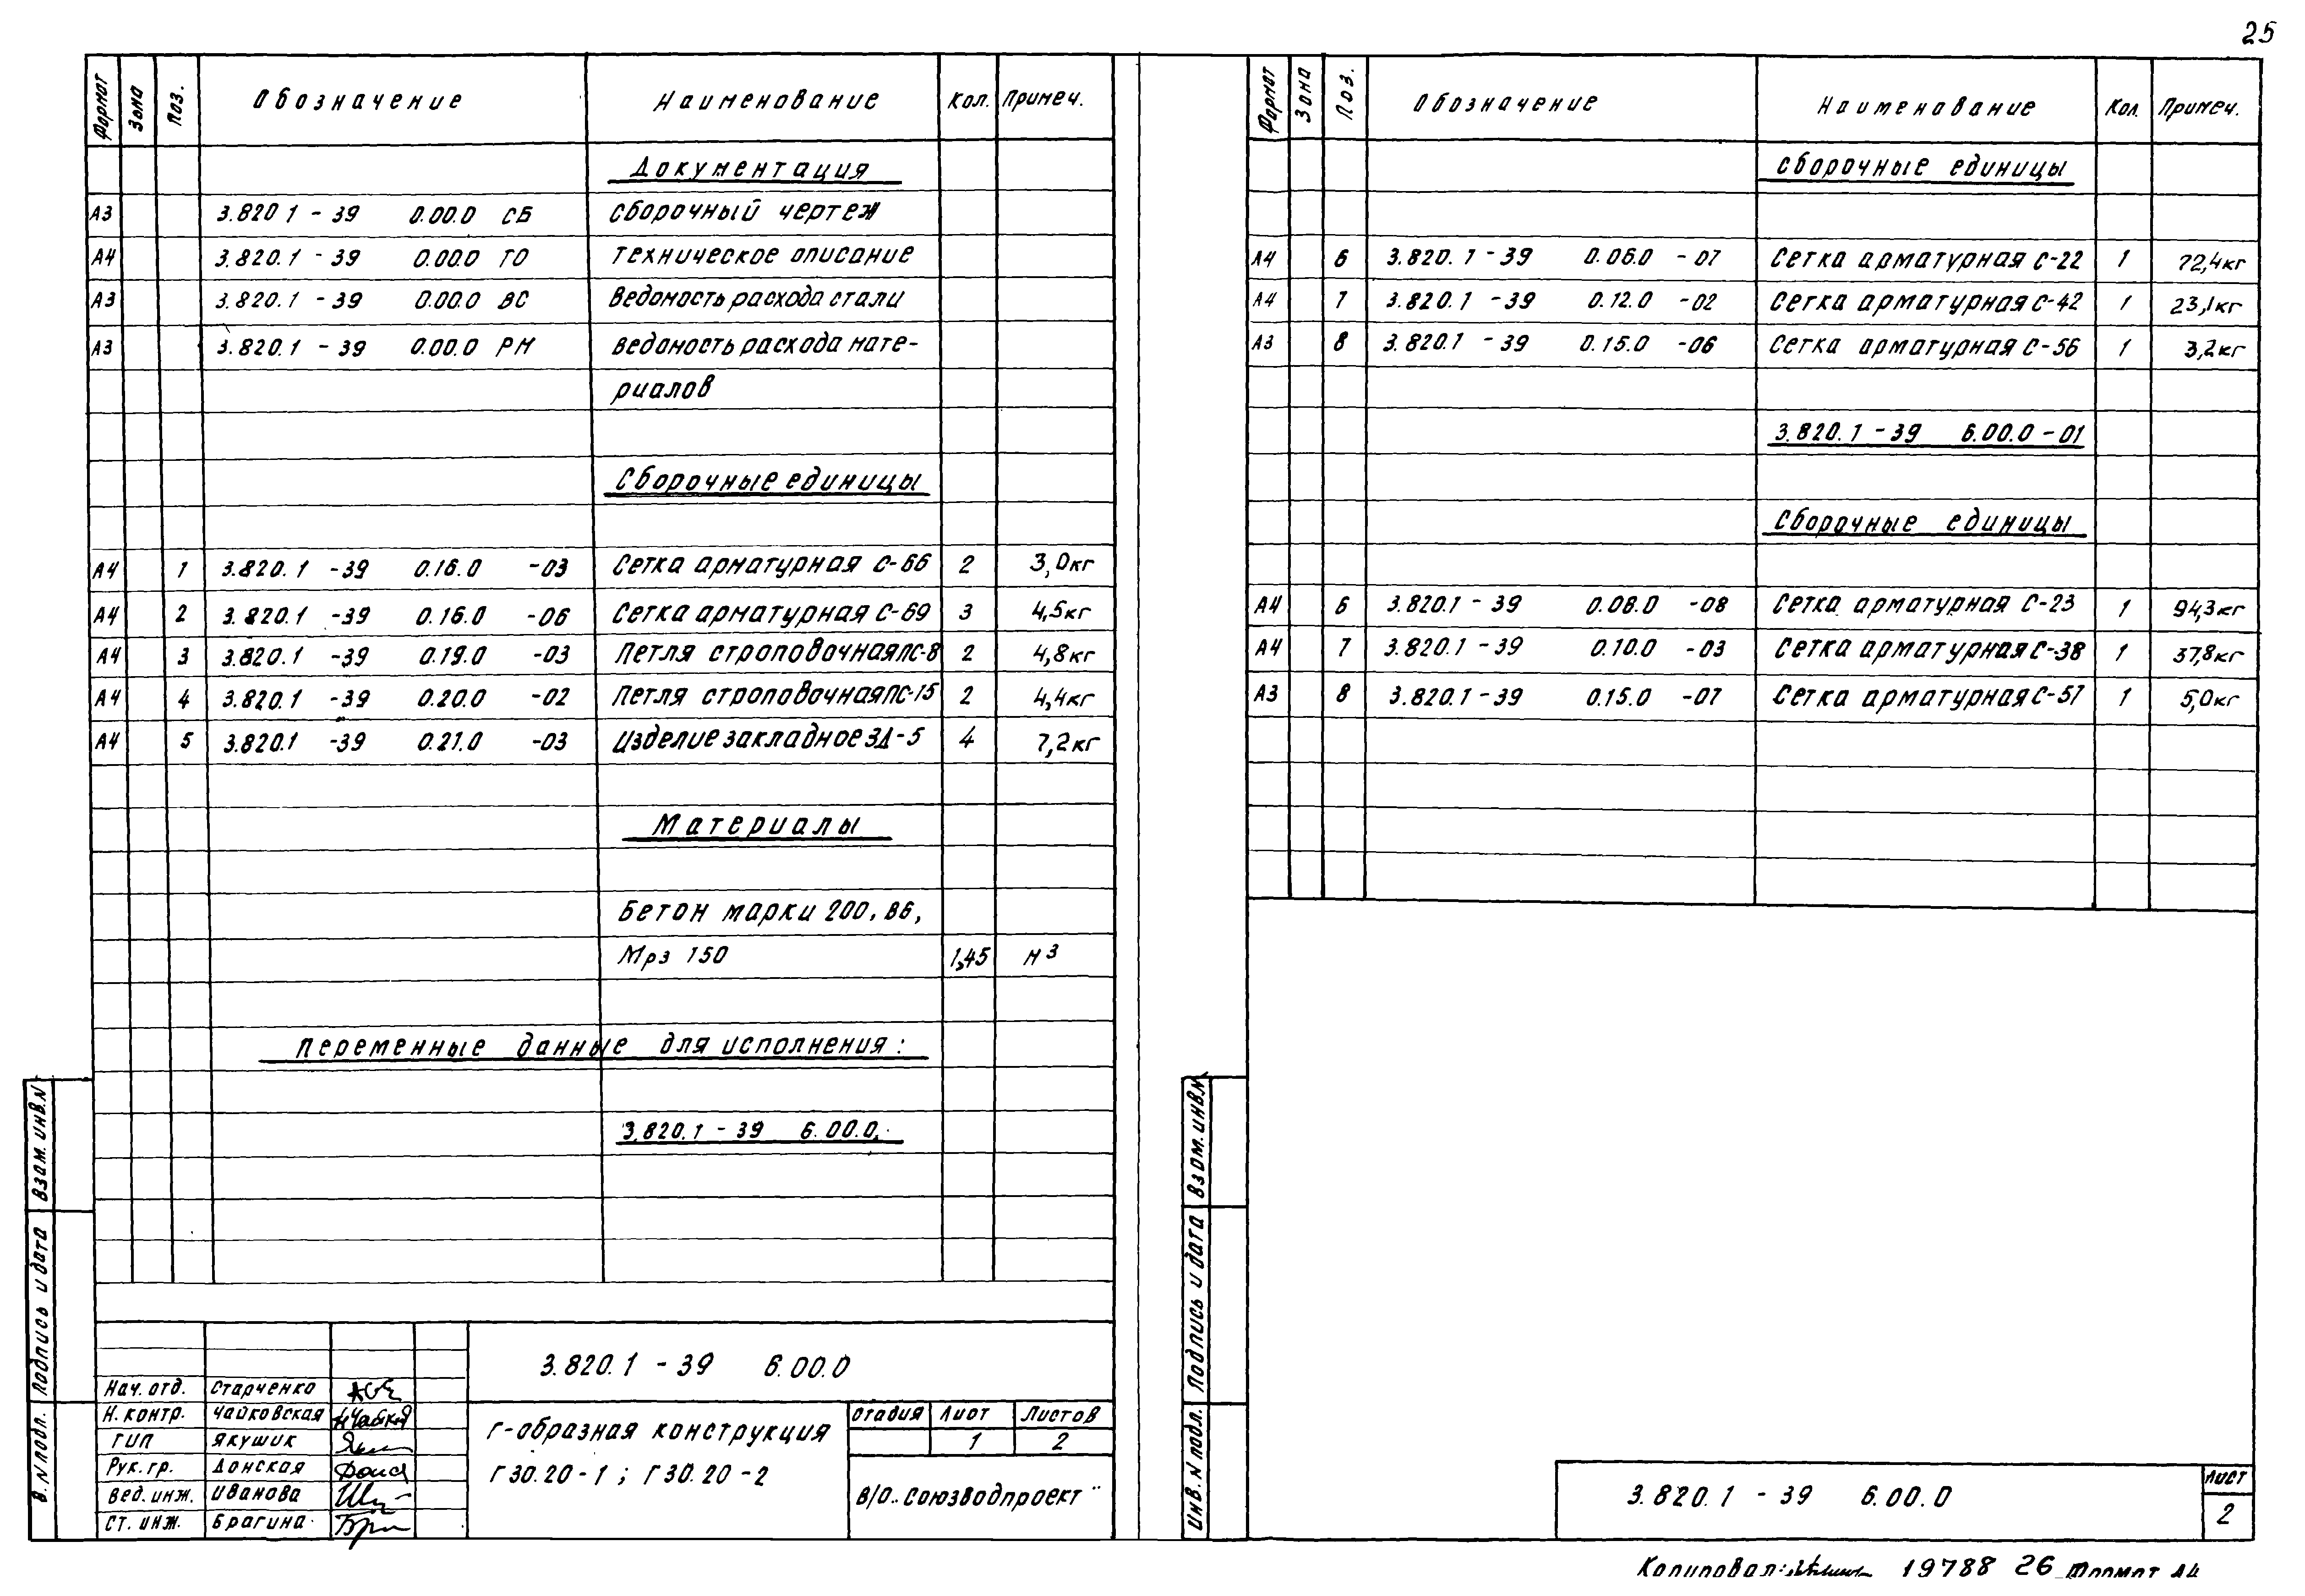 25
Формат Зона Поз. Обозначение Наименование Кол. Примеч.
Документация
А3 3.820 1 - 39 0.00.0 СБ Сборочный чертеж
А4 3.820.1 - 39 0.00.0 ТО Техническое описание
А3 3.820.1 - 39 0.00.0 ВС Ведомость расхода стали
А3 3.820.1 - 39 0.00.0 РМ Ведомость расхода мате-
риалов
Сборочные единицы
А4 1 3.820.1 -39 0.16.0 -03 Сетка арматурная С-66 2 3,0кг
А4 2 3.820.1 -39 0.16.0 -06 Сетка арматурная С-69 3 4,5кг
А4 3 3.820.1 -39 0.19.0 -03 Петля строповочная ПС-8 2 4,8кг
А4 4 3.820.1 -39 0.20.0 -02 Петля строповочная ПС-15 2 4,4кг
А4 5 3.820.1 -39 0.21.0 -03 Изделие закладное ЗД-5 4 7,2кг
Материалы
Бетон марки 200, В6,
Мрз 150 1,45 м3
Переменные данные для исполнения:
3.820.1 - 39 6.00.0.
3.820.1 - 39 6.00.0
Нач. отд. Старченко
Н. контр. Чайковская
ГИП Якушик
Рук. гр. Донская
Вед. инж. Иванова
Ст. инж. Брагина
Г-образная конструкция
Г30.20-1; Г30.20-2
Стадия Лист Листов
1 2
В/О „Союзводпроект"
В. N подл. Подпись и дата Взам. инв. N
Формат Зона Поз. Обозначение Наименование Кол. Примеч.
Сборочные единицы
А4 6 3.820.1 - 39 0.06.0 - 07 Сетка арматурная С-22 1 72,4кг
А4 7 3.820.1 - 39 0.12.0 -02 Сетка арматурная С-42 1 23,1кг
А3 8 3.820.1 - 39 0.15.0 -06 Сетка арматурная С-56 1 3,2кг
3.820.1 - 39 6.00.0 - 01
Сборочные единицы
А4 6 3.820.1 - 39 0.06.0 -08 Сетка арматурная С-23 1 94,3кг
А4 7 3.820.1 - 39 0.10.0 -03 Сетка арматурная С-38 1 37,8кг
А3 8 3.820.1 - 39 0.15.0 -07 Сетка арматурная С-57 1 5,0кг
Инв. N подл. Подпись и дата Взам. инв. N
3.820.1 - 39 6.00.0
Лист
2
Копировал: 19788 26 Формат А4